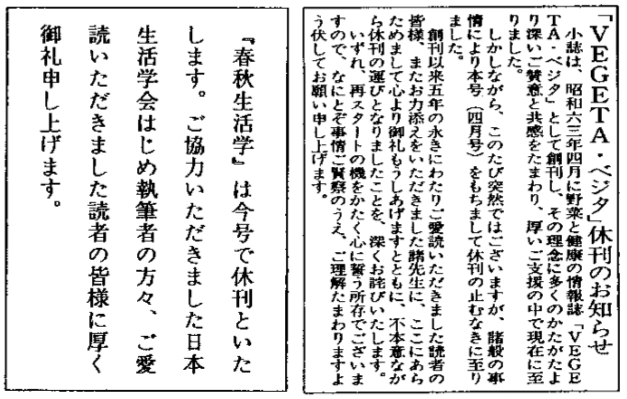 「VEGETA・ベジタ」休刊のお知らせ
小誌は、昭和六三年四月に野菜と健康の情報誌「VEGE
TA・ベジタ」として創刊し、その理念に多くのかたがたよ
り深いご賛意と共感をたまわり、厚いご支援の中で現在に至
りました。
しかしながら、このたび突然ではございますが、諸般の事
情により本号（四月号）をもちまして休刊の止むなきに至り
ました。
創刊以来五年の永きにわたりご愛読いただきました読者の
皆様、またお力添えをいただきました諸先生に、ここにあら
ためまして心より御礼もうしあげますとともに、不本意なが
ら休刊の運びとなりましたことを、深くお詫びいたします。
いずれ、再スタートの機をかたく心に誓う所存でございま
すので、なにとぞ事情ご賢察のうえ、ご理解たまわりますよ
う伏してお願い申し上げます。
『春秋生活学』は今号で休刊といた
します。ご協力いただきました日本
生活学会はじめ執筆者の方々、ご愛
読いただきました読者の皆様に厚く
御礼申し上げます。